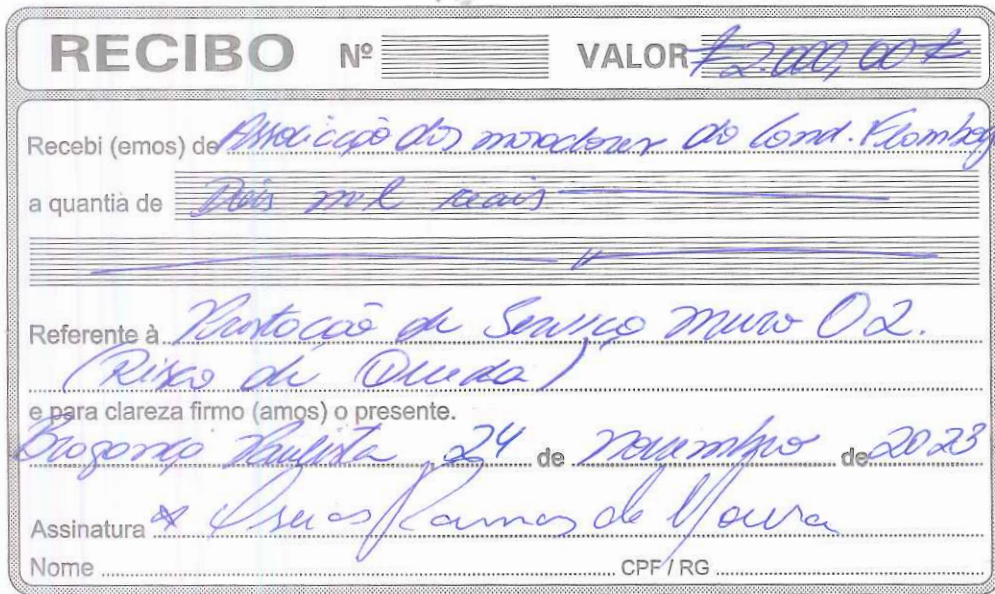 RECIBO Nº VALOR #2.000,00#
Recebi (emos) de Associação dos moradores do Cond. Flamboy
a quantia de Dois mil reais
Referente à Prestação de Serviço muro 02.
(Risco de Queda)
e para clareza firmo (amos) o presente.
Bragança Paulista, 24 de novembro de 2023
Assinatura Oseias Ramos de Moura
Nome CPF / RG